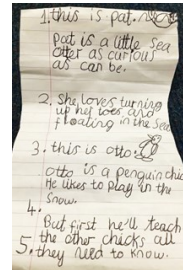 1. this is pat.
pat is a little sea
otter as curious
as can be.
2. She loves turning
up her toes and
floating in the sea
3. this is otto.
otto is a penguin chic
He likes to play in the
snow.
4.
But first he'll teach
5. the other chicks all
they need to know.